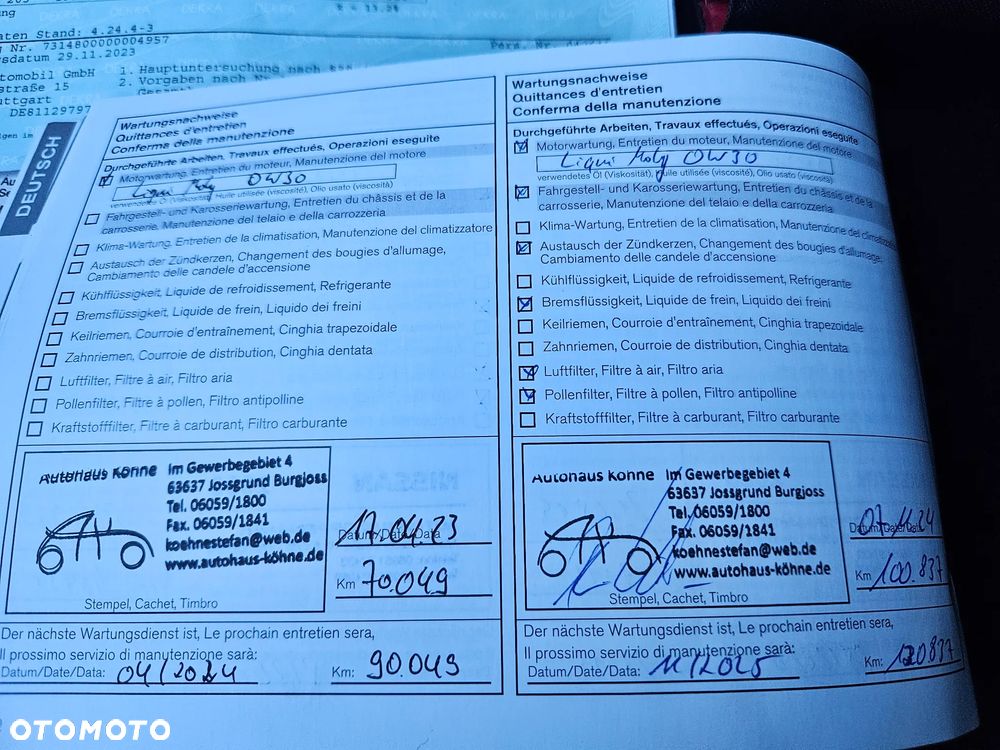 aten Stand: 4.24.4-3
g Nr. 7314800000004957
sdatum 29.11.2023
tomobil GmbH
straße 15
uttgart
DE81129797
1. Hauptuntersuchung nach
2. Vorgaben nach
DEKRA
DEUTSCH
Wartungsnachweise
Quittances d'entretien
Conferma della manutenzione
Durchgeführte Arbeiten, Travaux effectués, Operazioni eseguite
Motorwartung, Entretien du moteur, Manutenzione del motore
Liqui Moly 0W30
verwendetes Öl (Viskosität), Huile utilisée (viscosité), Olio usato (viscosità)
Fahrgestell- und Karosseriewartung, Entretien du châssis et de la
carrosserie, Manutenzione del telaio e della carrozzeria
Klima-Wartung, Entretien de la climatisation, Manutenzione del climatizzatore
Austausch der Zündkerzen, Changement des bougies d'allumage,
Cambiamento delle candele d'accensione
Kühlflüssigkeit, Liquide de refroidissement, Refrigerante
Bremsflüssigkeit, Liquide de frein, Liquido dei freini
Keilriemen, Courroie d'entraînement, Cinghia trapezoidale
Zahnriemen, Courroie de distribution, Cinghia dentata
Luftfilter, Filtre à air, Filtro aria
Pollenfilter, Filtre à pollen, Filtro antipolline
Kraftstofffilter, Filtre à carburant, Filtro carburante
Autohaus Köhne
Im Gewerbegebiet 4
63637 Jossgrund Burgjoss
Tel. 06059/1800
Fax. 06059/1841
koehnestefan@web.de
www.autohaus-köhne.de
Stempel, Cachet, Timbro
17.04.23
Datum/Date/Data
Km 70.049
Der nächste Wartungsdienst ist, Le prochain entretien sera,
Il prossimo servizio di manutenzione sarà:
Datum/Date/Data: 04/2024 Km: 90.049
Wartungsnachweise
Quittances d'entretien
Conferma della manutenzione
Durchgeführte Arbeiten, Travaux effectués, Operazioni eseguite
Motorwartung, Entretien du moteur, Manutenzione del motore
Liqui Moly 0W30
verwendetes Öl (Viskosität), Huile utilisée (viscosité), Olio usato (viscosità)
Fahrgestell- und Karosseriewartung, Entretien du châssis et de la
carrosserie, Manutenzione del telaio e della carrozzeria
Klima-Wartung, Entretien de la climatisation, Manutenzione del climatizzatore
Austausch der Zündkerzen, Changement des bougies d'allumage,
Cambiamento delle candele d'accensione
Kühlflüssigkeit, Liquide de refroidissement, Refrigerante
Bremsflüssigkeit, Liquide de frein, Liquido dei freini
Keilriemen, Courroie d'entraînement, Cinghia trapezoidale
Zahnriemen, Courroie de distribution, Cinghia dentata
Luftfilter, Filtre à air, Filtro aria
Pollenfilter, Filtre à pollen, Filtro antipolline
Kraftstofffilter, Filtre à carburant, Filtro carburante
Autohaus Köhne
Im Gewerbegebiet 4
63637 Jossgrund Burgjoss
Tel. 06059/1800
Fax. 06059/1841
koehnestefan@web.de
www.autohaus-köhne.de
Stempel, Cachet, Timbro
07.11.24
Datum/Date/Data
Km 100.837
Der nächste Wartungsdienst ist, Le prochain entretien sera,
Il prossimo servizio di manutenzione sarà:
Datum/Date/Data: 11/2025 Km: 120.837
OTOMOTO